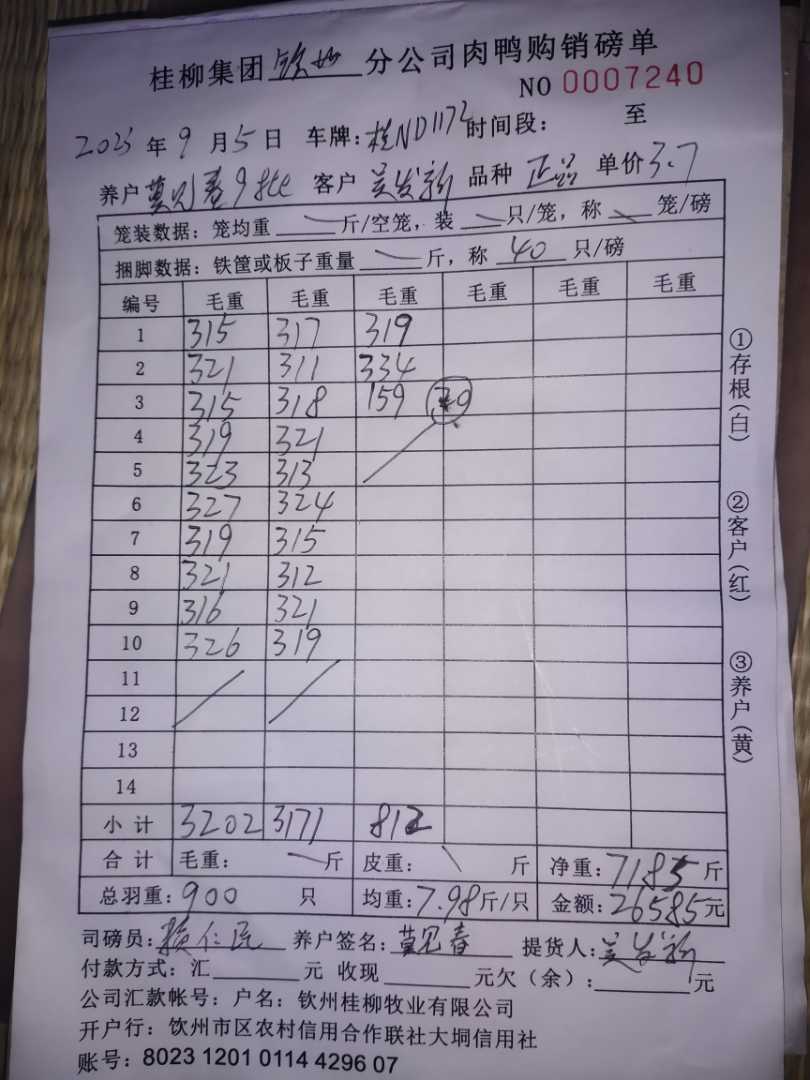 桂柳集团钦州分公司肉鸭购销磅单
NO 0007240
2023年9月5日 车牌:桂ND1172时间段: 至
养户莫见春9批 客户吴发新 品种正品 单价3.7
笼装数据:笼均重 斤/空笼,装 只/笼,称 笼/磅
捆脚数据:铁筐或板子重量 斤,称40只/磅
编号 毛重 毛重 毛重 毛重 毛重 毛重
1 315 317 319
2 321 311 334
3 315 318 159
4 319 321
5 323 313
6 327 324
7 319 315
8 321 312
9 316 321
10 326 319
11
12
13
14
小计 3202 3171 812
合计 毛重: 斤 皮重: 斤 净重:7185斤
总羽重:900 只 均重:7.98斤/只 金额:26585元
司磅员: 养户签名:莫见春 提货人:吴发新
付款方式:汇 元 收现 元欠(余): 元
公司汇款帐号:户名:钦州桂柳牧业有限公司
开户行:钦州市区农村信用合作联社大垌信用社
账号:8023 1201 0114 4296 07
①存根(白)
②客户(红)
③养户(黄)